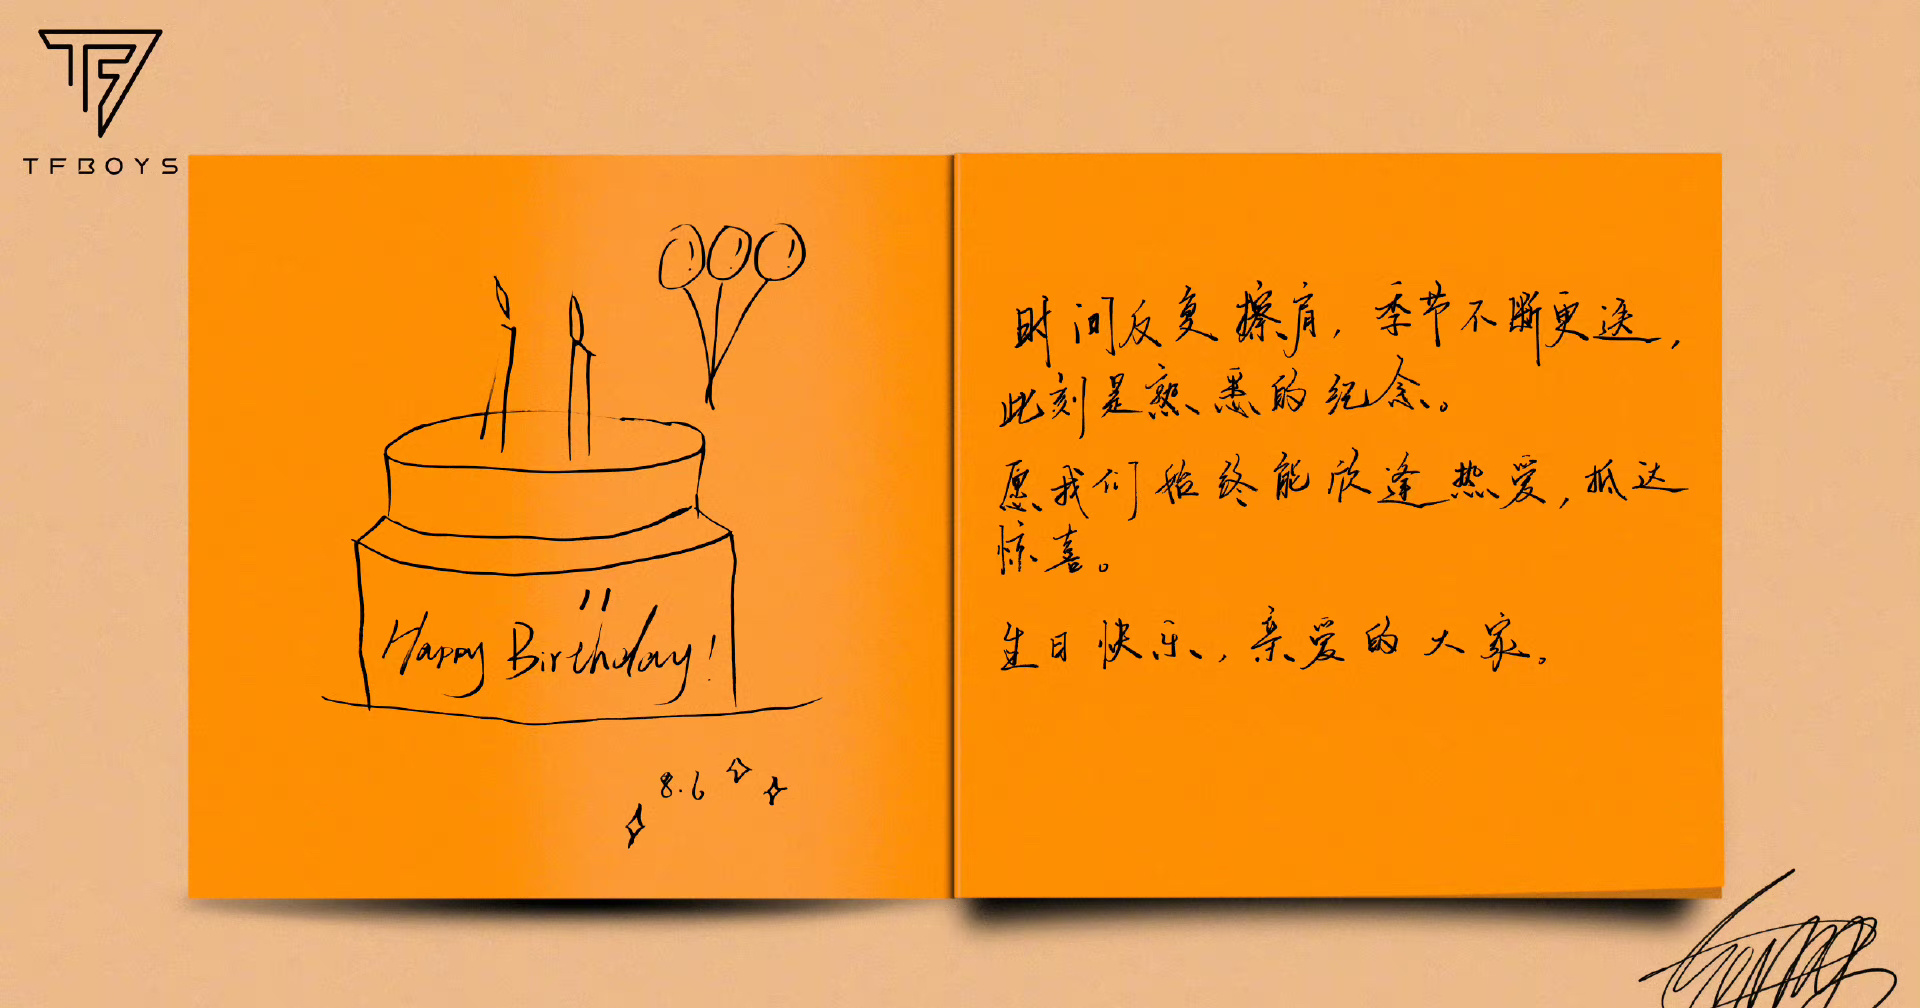 TFBOYS
Happy Birthday!
8.6
时间反复擦肩,季节不断更迭,
此刻是熟悉的纪念。
愿我们始终能欣逢热爱,抵达
惊喜。
生日快乐,亲爱的大家。